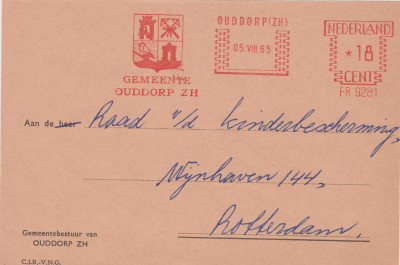 OUDDORP (ZH)
05.VIII.65
NEDERLAND
* 18
CENT
FR 9281
GEMEENTE
OUDDORP ZH
Aan de heer Raad v/d Kinderbescherming,
Wijnhaven 144,
Rotterdam.
Gemeentebestuur van
OUDDORP ZH
C.I.B.-V.N.G.